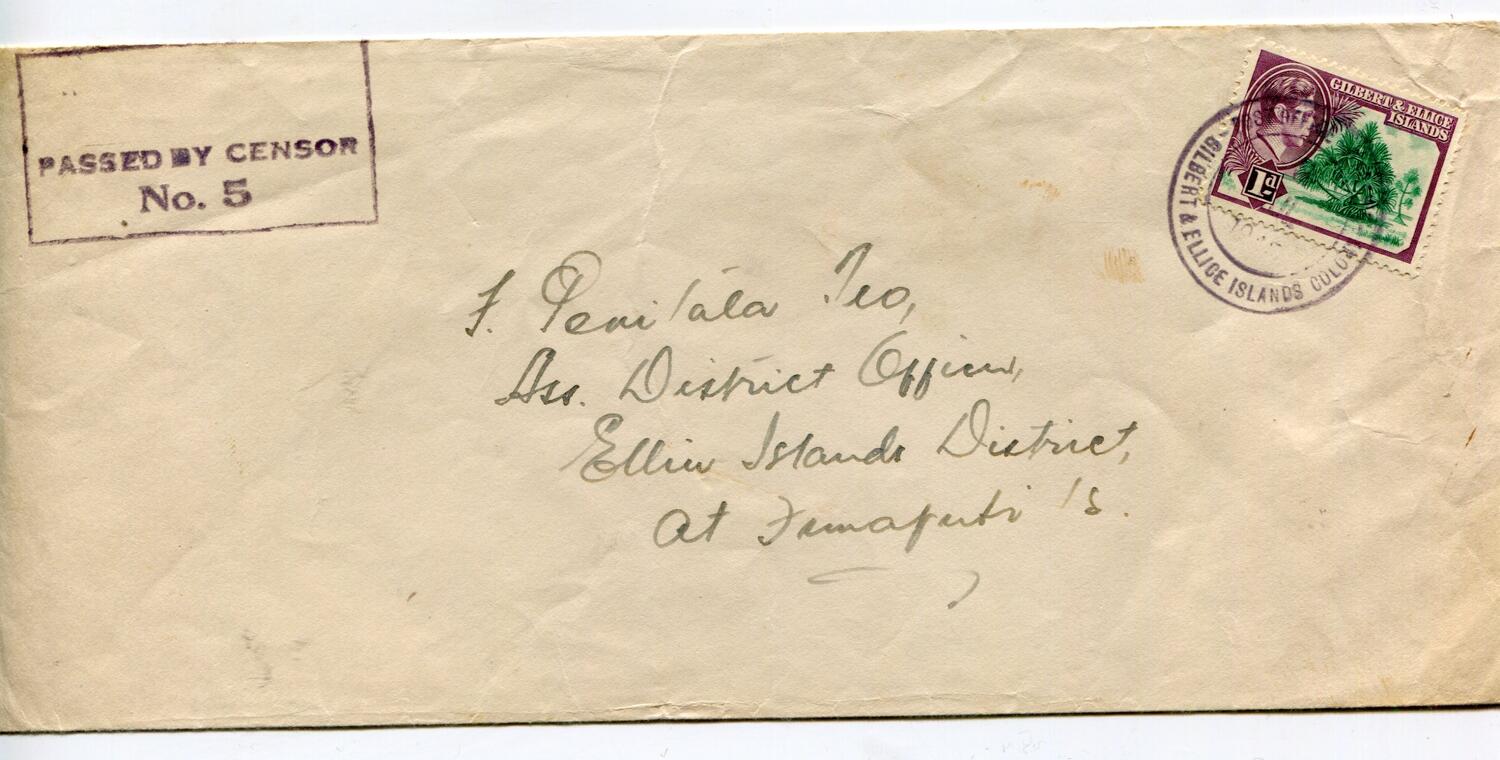 PASSED BY CENSOR
No. 5
GILBERT & ELLICE
ISLANDS
1d
POST OFFICE
GILBERT & ELLICE ISLANDS COLONY
F. Penitala Teo,
Ass. District Officer,
Ellice Islands District,
At Funafuti Is.